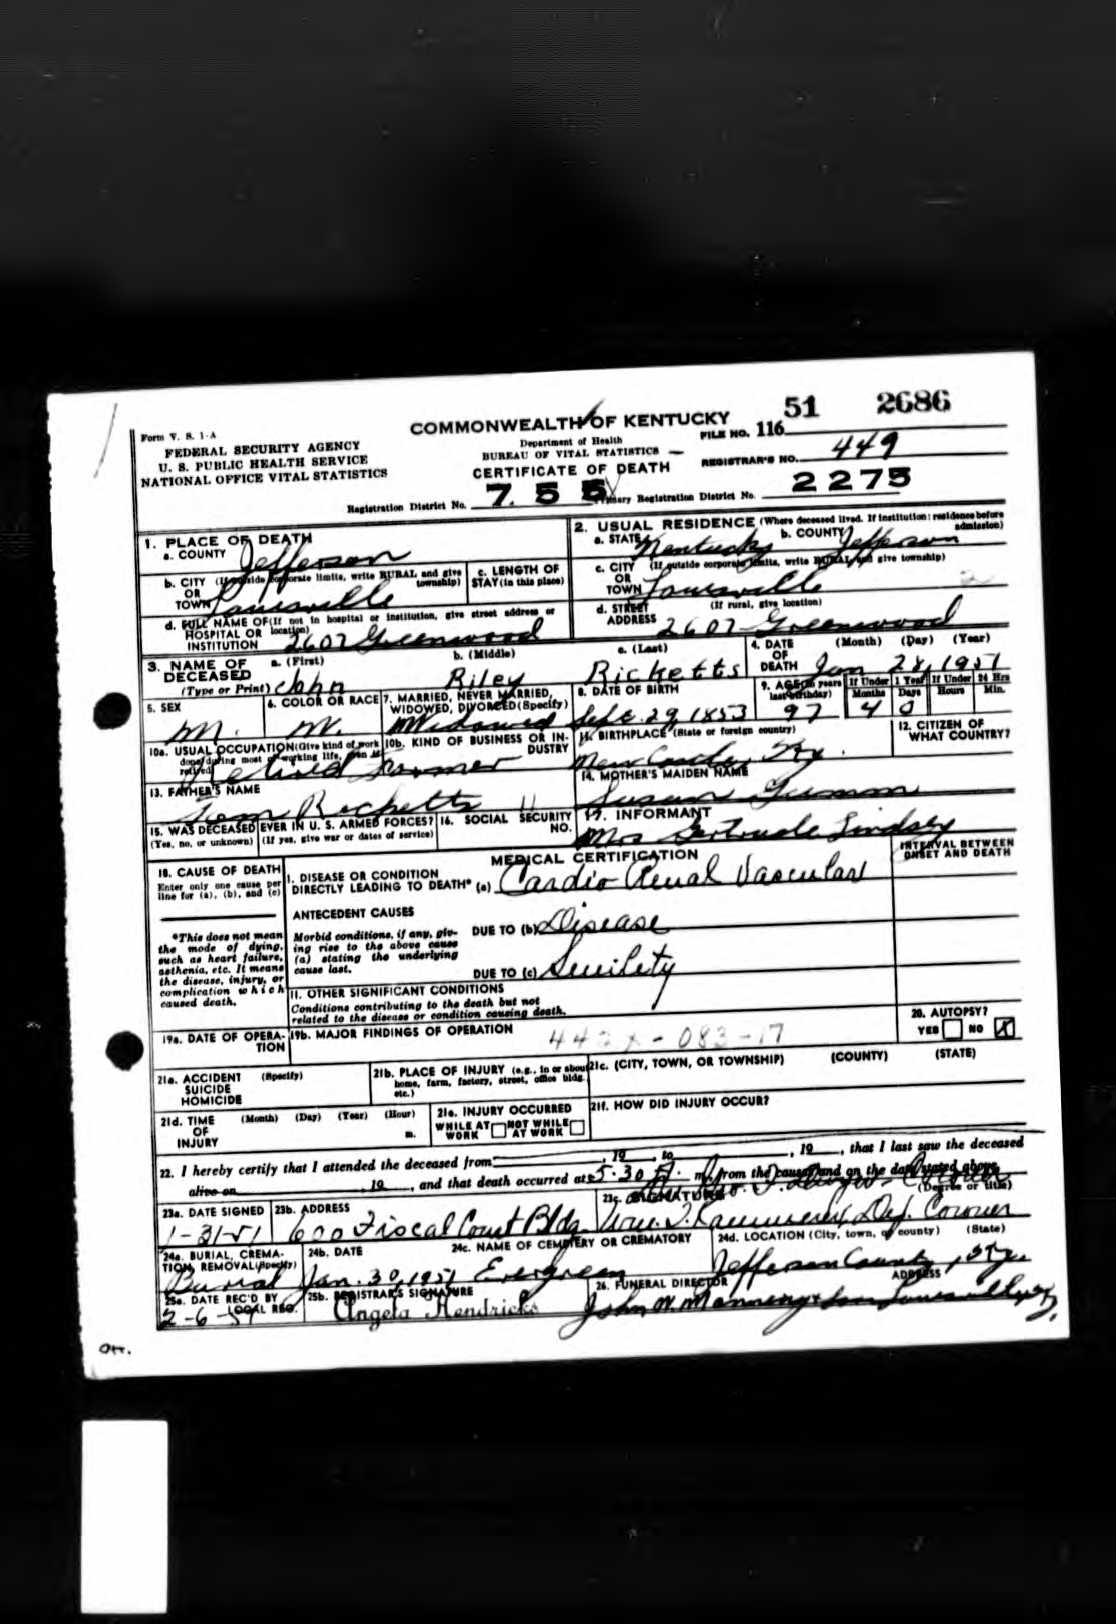 51 2686
COMMONWEALTH OF KENTUCKY
Form V. S. 1-A
FEDERAL SECURITY AGENCY
U. S. PUBLIC HEALTH SERVICE
NATIONAL OFFICE VITAL STATISTICS
Department of Health
BUREAU OF VITAL STATISTICS
CERTIFICATE OF DEATH
FILE NO. 116
REGISTRAR'S NO. 449
Registration District No. 755 Primary Registration District No. 2275
1. PLACE OF DEATH
a. COUNTY Jefferson
2. USUAL RESIDENCE (Where deceased lived. If institution: residence before admission)
a. STATE Kentucky b. COUNTY Jefferson
b. CITY (If outside corporate limits, write RURAL and give township)
OR
TOWN Louisville
c. LENGTH OF
STAY (in this place)
c. CITY (If outside corporate limits, write RURAL and give township)
OR
TOWN Louisville
d. FULL NAME OF (If not in hospital or institution, give street address or location)
HOSPITAL OR
INSTITUTION 2607 Greenwood
d. STREET (If rural, give location)
ADDRESS 2607 Greenwood
3. NAME OF DECEASED
(Type or Print)
a. (First) b. (Middle) c. (Last)
John Riley Ricketts
4. DATE OF DEATH (Month) (Day) (Year)
Jan 28, 1951
5. SEX
M.
6. COLOR OR RACE
W.
7. MARRIED, NEVER MARRIED, WIDOWED, DIVORCED (Specify)
Widowed
8. DATE OF BIRTH
Sept. 29, 1853
9. AGE (In years last birthday)
97
If Under 1 Year If Under 24 Hrs
Months Days Hours Min.
4 0
10a. USUAL OCCUPATION (Give kind of work done during most of working life, even if retired)
Retired Farmer
10b. KIND OF BUSINESS OR INDUSTRY
11. BIRTHPLACE (State or foreign country)
New Castle, Ky.
12. CITIZEN OF WHAT COUNTRY?
13. FATHER'S NAME
Tom Ricketts
14. MOTHER'S MAIDEN NAME
Susan Gumm
15. WAS DECEASED EVER IN U. S. ARMED FORCES?
(Yes, no, or unknown) (If yes, give war or dates of service)
16. SOCIAL SECURITY NO.
17. INFORMANT
Mrs Gertrude Lindsey
18. CAUSE OF DEATH
Enter only one cause per line for (a), (b), and (c)
MEDICAL CERTIFICATION
INTERVAL BETWEEN ONSET AND DEATH
I. DISEASE OR CONDITION
DIRECTLY LEADING TO DEATH* (a) Cardio Renal Vascular
ANTECEDENT CAUSES
*This does not mean the mode of dying, such as heart failure, asthenia, etc. It means the disease, injury, or complication which caused death.
Morbid conditions, if any, giving rise to the above cause (a) stating the underlying cause last.
DUE TO (b) Disease
DUE TO (c) Senility
II. OTHER SIGNIFICANT CONDITIONS
Conditions contributing to the death but not
related to the disease or condition causing death.
19a. DATE OF OPERATION
19b. MAJOR FINDINGS OF OPERATION
442X-083-17
20. AUTOPSY?
YES NO X
21a. ACCIDENT (Specify)
SUICIDE
HOMICIDE
21b. PLACE OF INJURY (e.g., in or about home, farm, factory, street, office bldg. etc.)
21c. (CITY, TOWN, OR TOWNSHIP) (COUNTY) (STATE)
21d. TIME (Month) (Day) (Year) (Hour)
OF
INJURY m.
21e. INJURY OCCURRED
WHILE AT WORK NOT WHILE AT WORK
21f. HOW DID INJURY OCCUR?
22. I hereby certify that I attended the deceased from , 19 , to , 19 , that I last saw the deceased
alive on , 19 , and that death occurred at 5:30 A. m., from the causes and on the date stated above.
23a. DATE SIGNED
1-31-51
23b. ADDRESS
600 Fiscal Court Bldg
23c. SIGNATURE (Degree or title)
Coroner
Dep. Coroner
24a. BURIAL, CREMATION, REMOVAL (Specify)
Burial
24b. DATE
Jan. 30, 1951
24c. NAME OF CEMETERY OR CREMATORY
Evergreen
24d. LOCATION (City, town, or county) (State)
Jefferson County, Ky.
25a. DATE REC'D BY LOCAL REG.
2-6-51
25b. REGISTRAR'S SIGNATURE
Angela Hendricks
26. FUNERAL DIRECTOR ADDRESS
John W. Manning & Son Louisville, Ky.